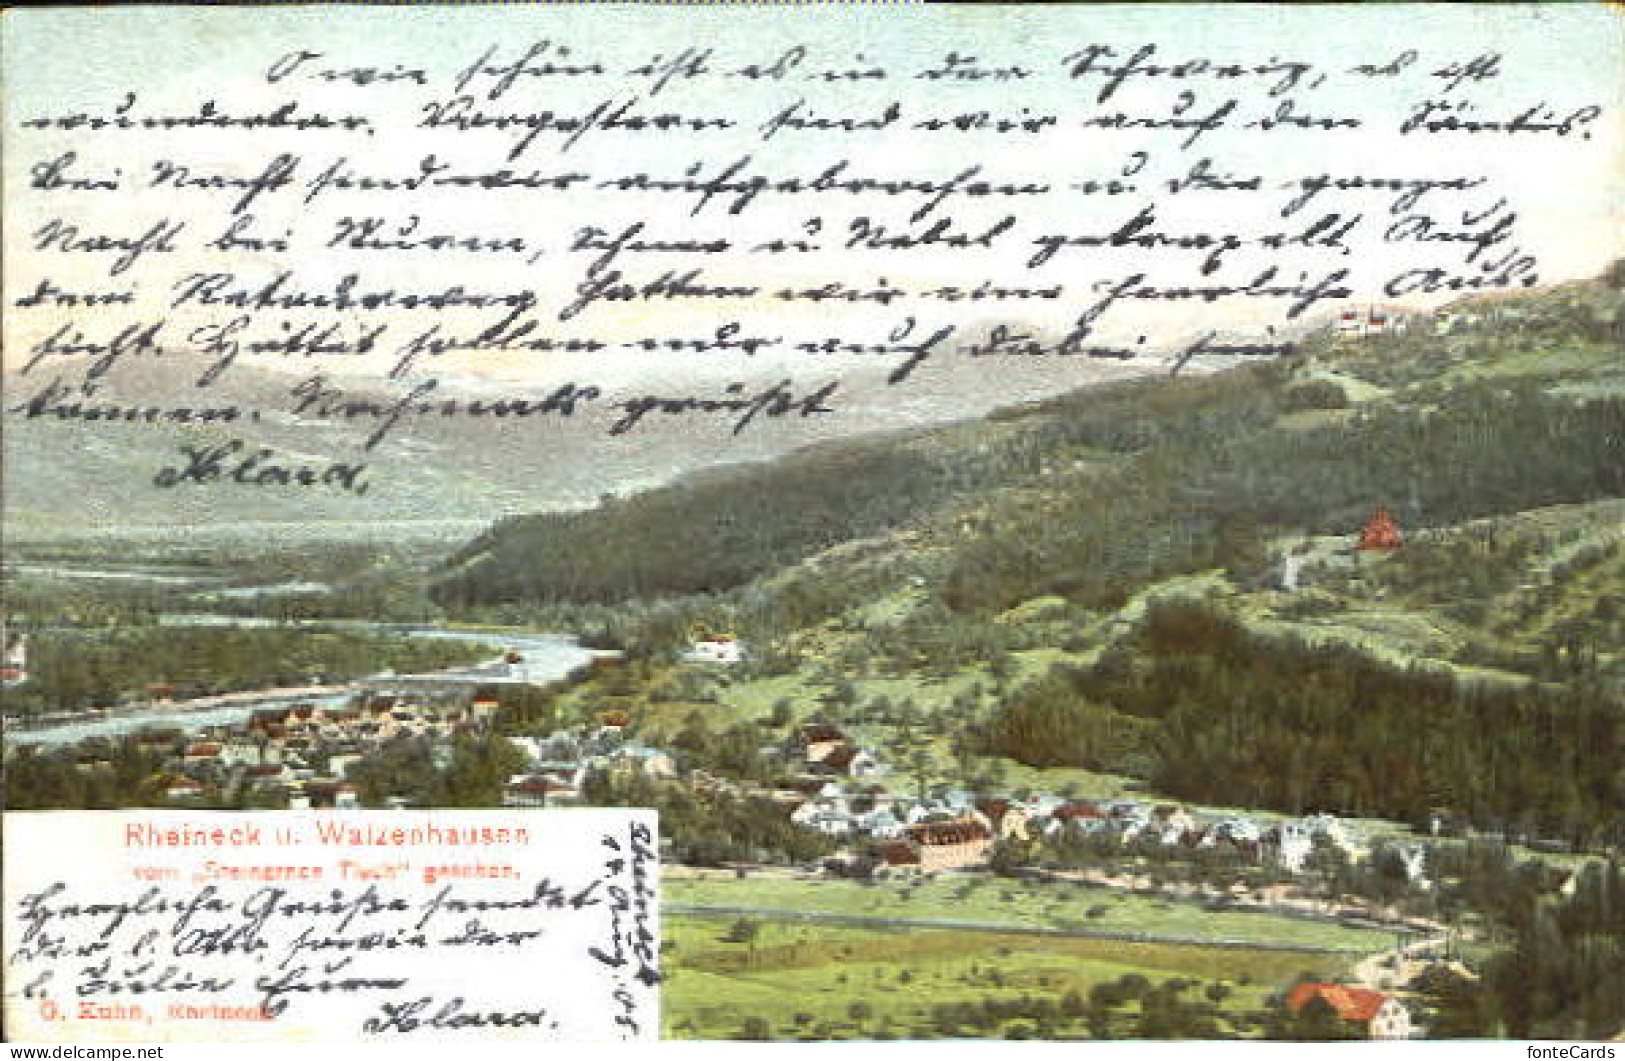 O wie schön ist es in der Schweiz, es ist
wunderbar. Vorgestern sind wir auf den Säntis.
Bei Nacht sind wir aufgebrochen u. die ganze
Nacht bei Sturm, Schnee u. Nebel gekraxelt. Auf
dem Retourweg hatten wir eine herrliche Aus-
sicht. Hättet sollen nur auch dabei sein
können. Nochmals grüßt
Klara.
Rheineck u. Walzenhausen
vom „Steinernen Tisch" gesehen.
Herzliche Grüße sendet
Dir, l. Otto, sowie der
l. Julie Eure
Klara.
G. Kuhn, Rheineck
Rheineck
17. Aug. 05.
fonteCards